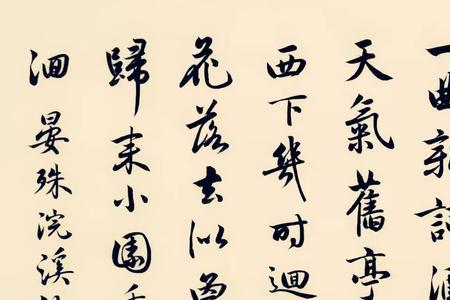 一曲新詞酒
天氣舊亭
西下幾时迴
花落去似曾
歸来小園
洄 晏殊浣溪